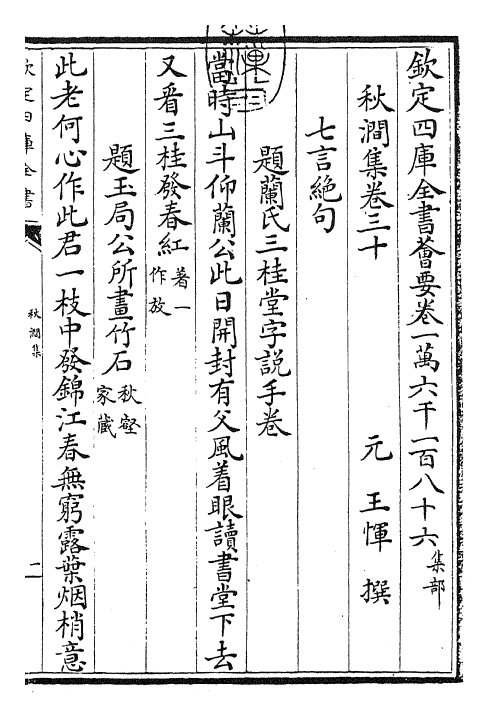 欽定四庫全書薈要卷一萬六千一百八十六集部
秋澗集卷三十　元　王惲　撰
七言絶句
題蘭氏三桂堂字説手卷
當時山斗仰蘭公此日開封有父風着眼讀書堂下去
又看三桂發春紅著一作放
題玉局公所畫竹石秋壑家藏
此老何心作此君一枝中發錦江春無窮露葉烟梢意
欽定四庫全書
秋澗集
二